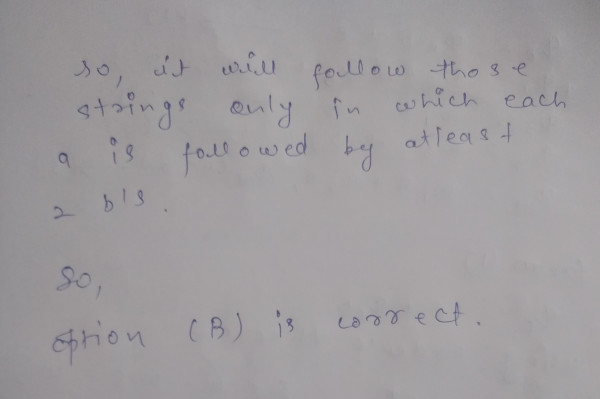 so, it will follow those
strings only in which each
a is followed by atleast
2 b's.
So,
option (B) is correct.